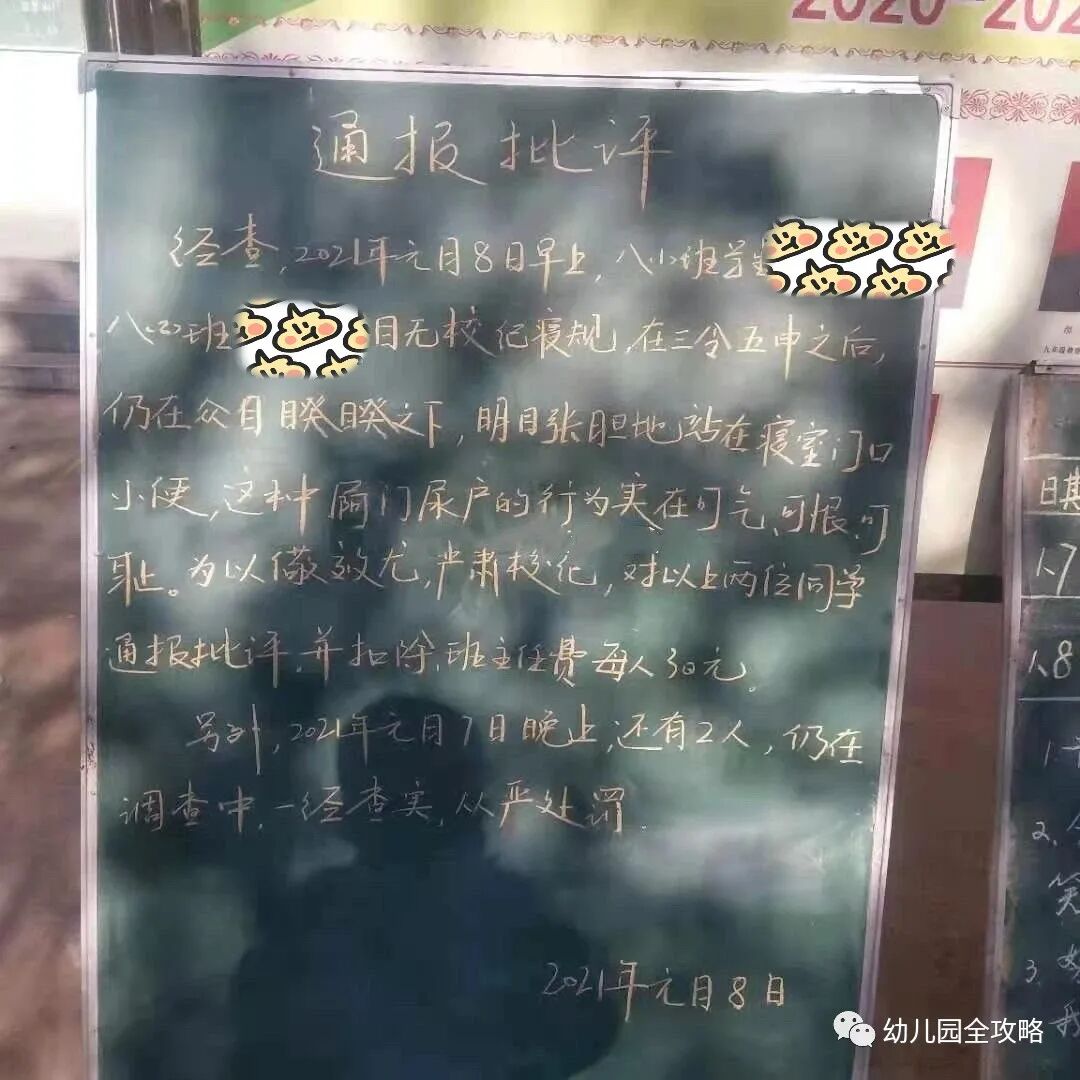 2020-202
通报批评
经查，2021年元月8日早上，八(1)班学生
八(2)班 目无校纪寝规，在三令五申之后，
仍在众目睽睽之下，明目张胆地站在寝室门口
小便，这种屙门尿户的行为实在可气、可恨、可
耻。为以儆效尤，严肃校纪，对以上两位同学
通报批评，并扣除班主任费每人30元。
另外，2021年元月7日晚上，还有2人，仍在
调查中，一经查实，从严处罚。
2021年元月8日
日期
1.7
1.8
1.
2.
3.
幼儿园全攻略